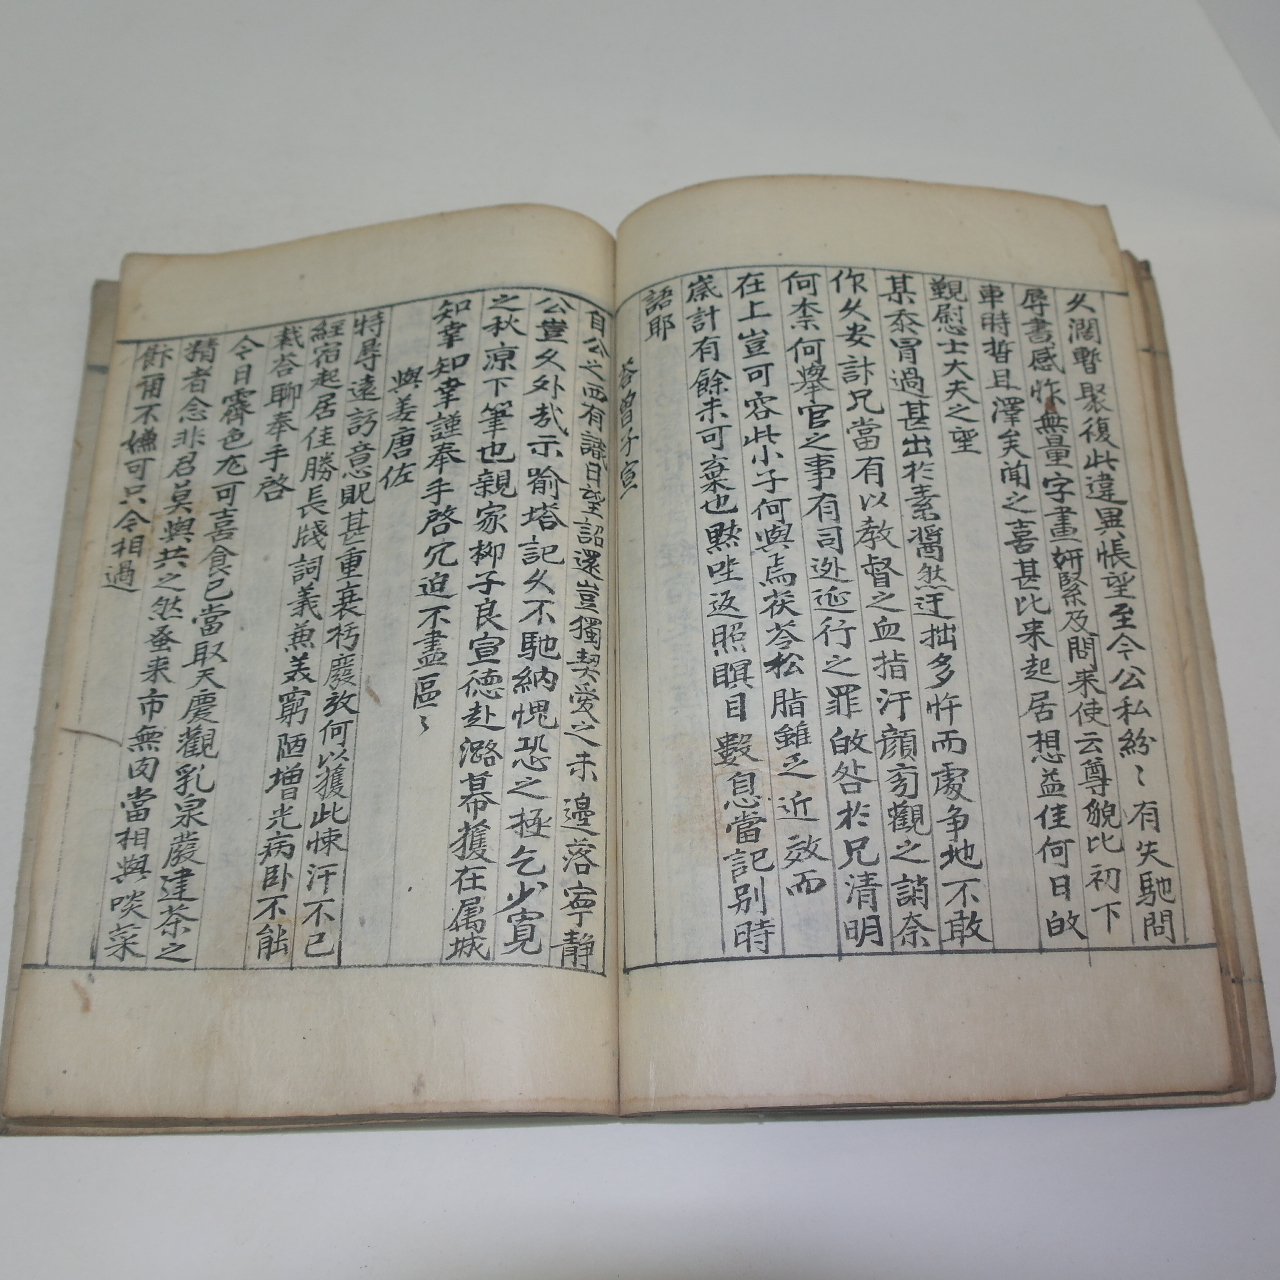 久濶暫聚復此違異悵望至今公私紛〻有失馳問
辱書感怍無量字畫姸緊及問来使云尊貌比初下
車時晢且澤矣闻之喜甚比来起居想益佳何日的
覲慰士大夫之望
某忝冒過甚出扵素奬然迂拙多忤而處争地不敢
作久安計兄當有以教督之血指汗顔㫄觀之誚奈
何柰何擧官之事有司逊延行之罪的咎扵兄清明
在上豈可容此小子何與焉茯苓松脂雖乏近效而
歲計有餘未可棄也黙坐返照瞑目數息當記别時
語耶
答曾子宣
自公之西有識日望詔還豈獨契愛之末邊落寧静
公豈久外㢤示喻塔記久不馳納愧恐之極乞少寬
之秋凉下筆也親家柳子良宣徳赴潞幕獲在属城
知幸知幸謹奉手啓冗迫不盡區〻
與姜唐佐
特辱遠訪意貺甚重衰朽廢放何以獲此悚汗不已
經宿起居佳勝長牋詞義兼羙窮陋増光病卧不能
裁答聊奉手啓
今日霽色尤可喜食已當取天慶觀乳泉潑建茶之
精者念非君莫與共之然蚤来市無肉當相與啖菜
飰爾不嫌可只今相過